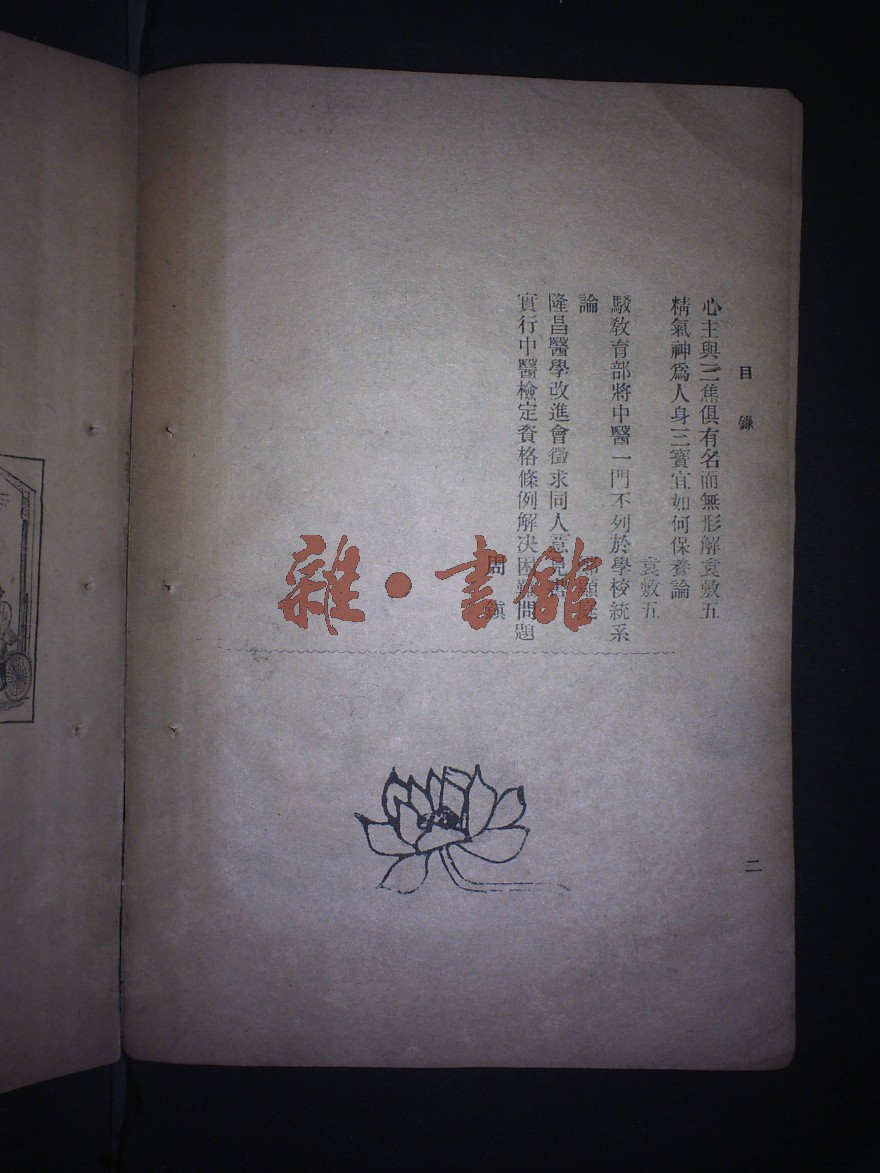 目錄
心主與三焦俱有名而無形解 袁敷五
精氣神爲人身三寶宜如何保養論
袁敷五
駁敎育部將中醫一門不列於學校統系
論
隆昌醫學改進會徵求同人意見書
實行中醫檢定資格條例解決困難問題
周
二
雜·書館